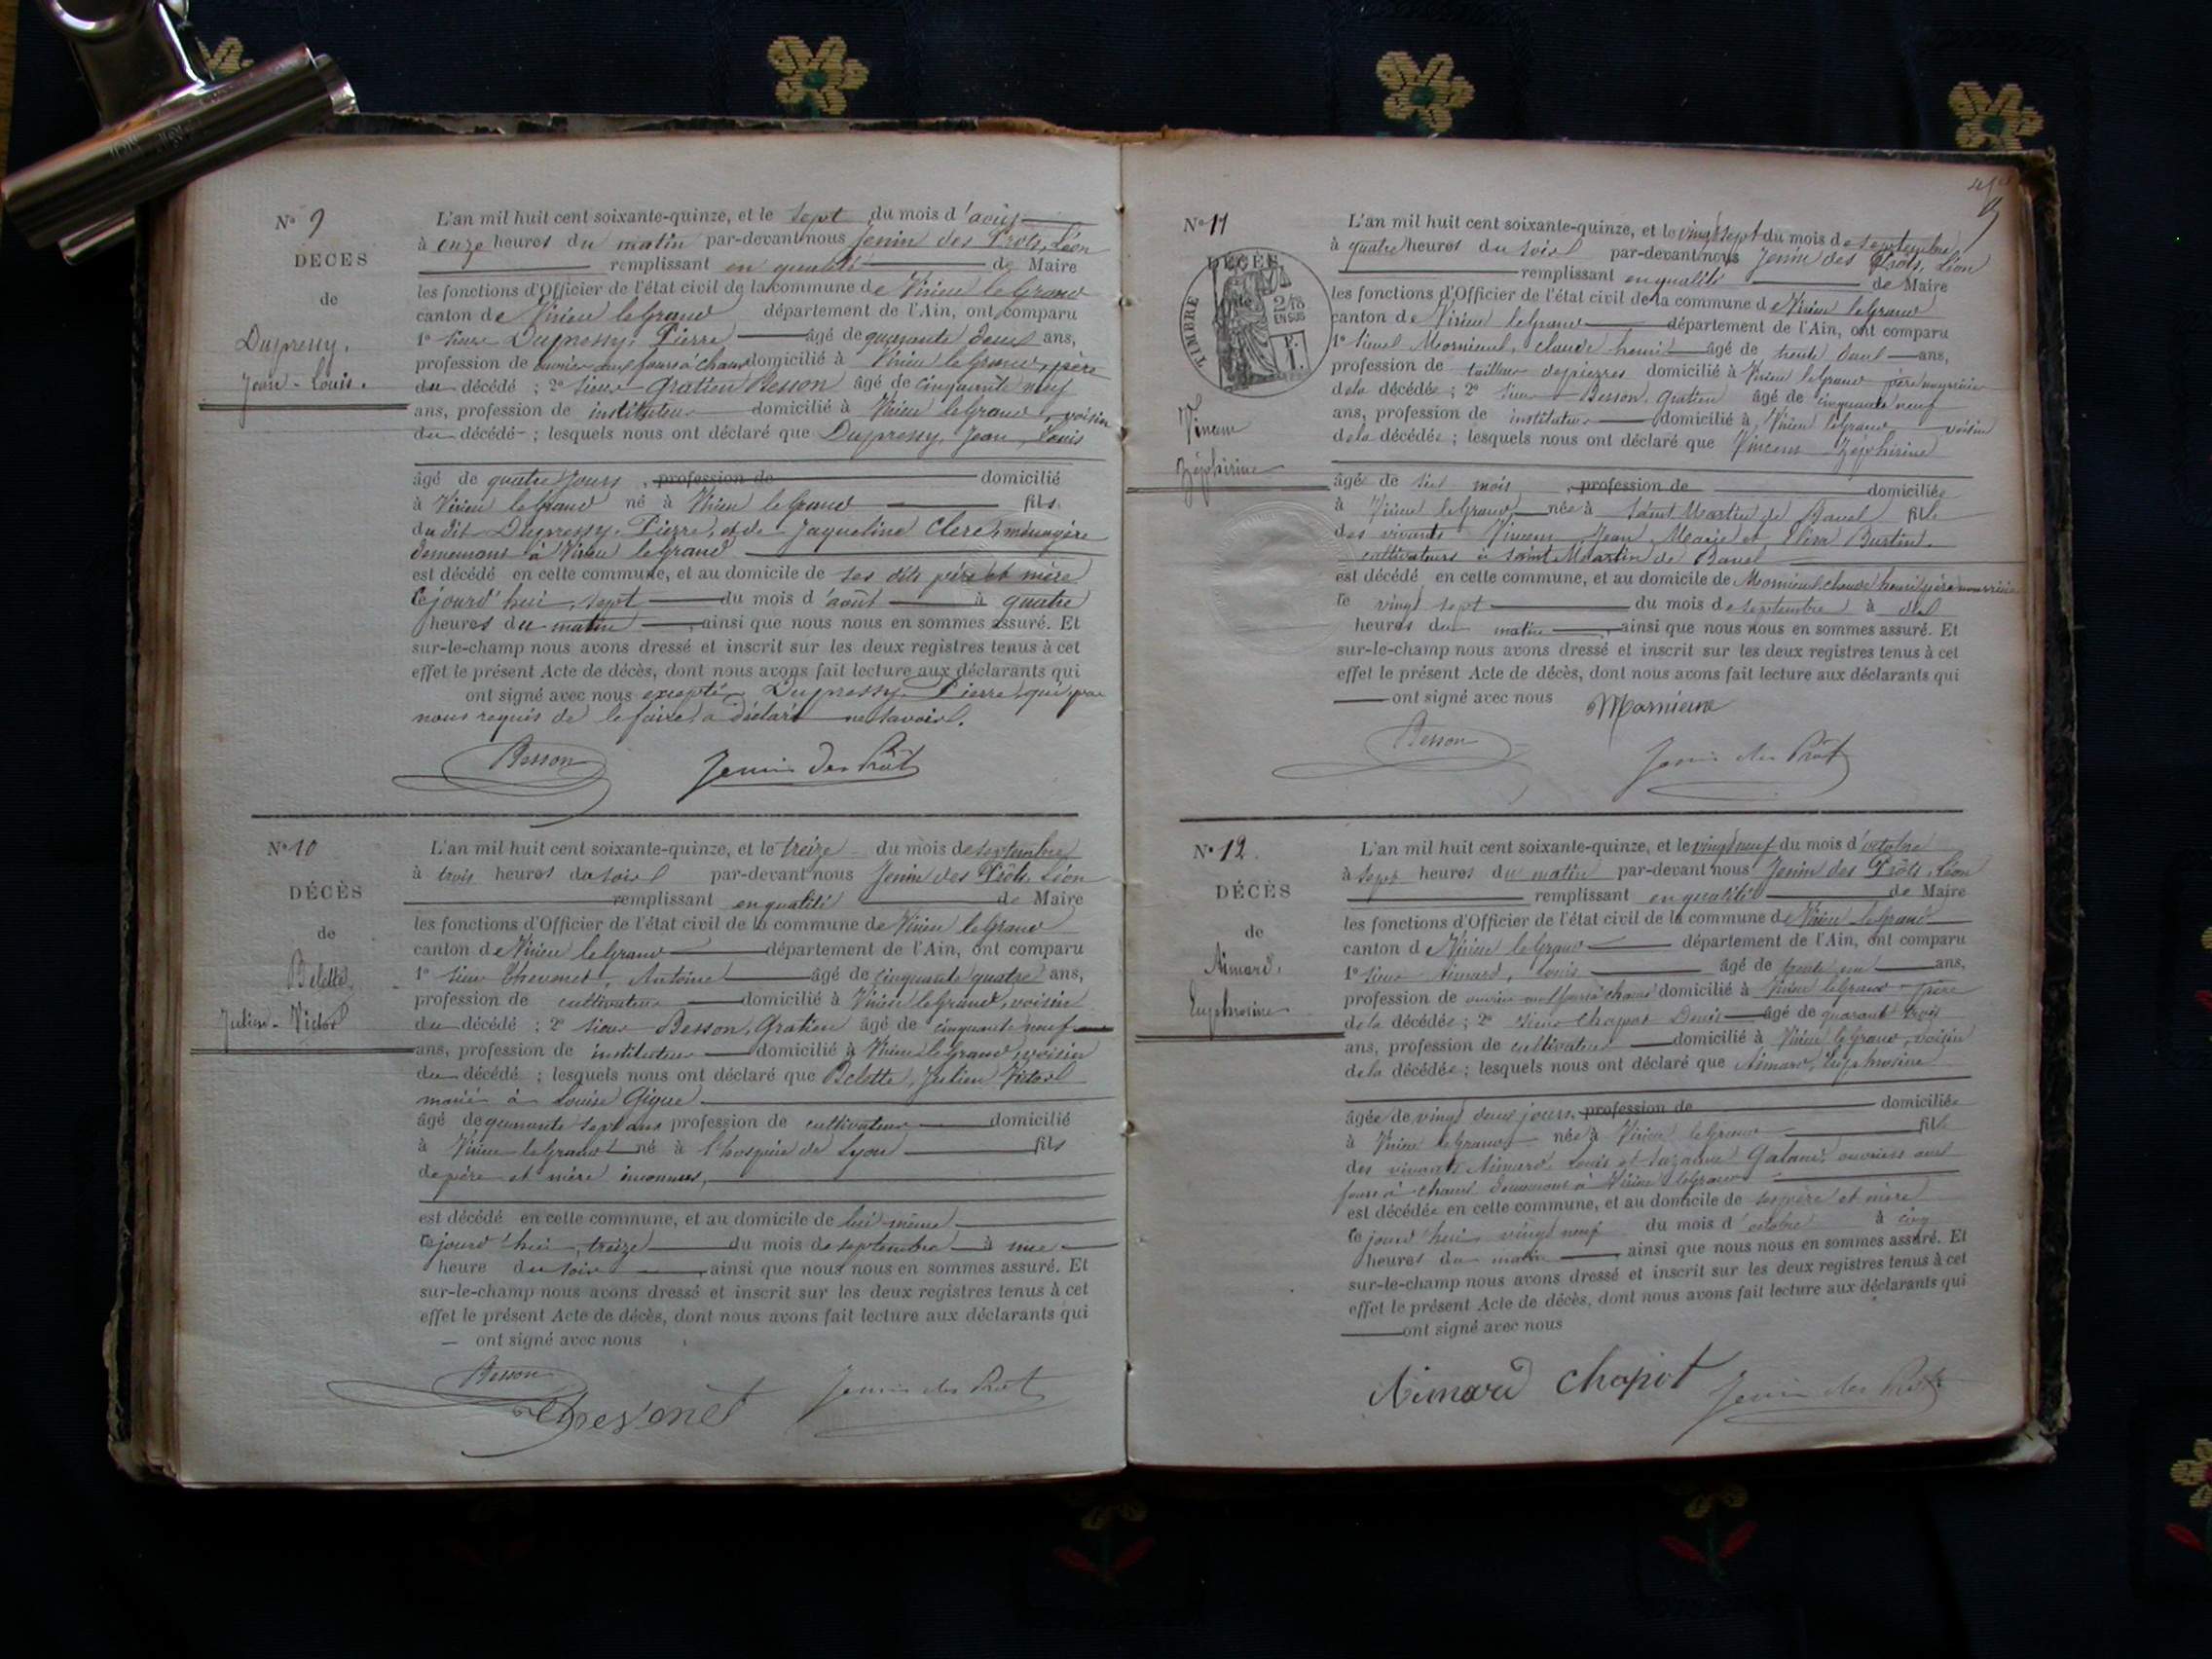 N° 9
DÉCÈS
de
Dupressy.
Jean-Louis.
L'an mil huit cent soixante-quinze, et le sept du mois d'août
à onze heures du matin par-devant nous Jenin des Prôts, Léon
remplissant en qualité de Maire
les fonctions d'Officier de l'état civil de la commune de Virieu le Grand
canton de Virieu le Grand département de l'Ain, ont comparu
1° sieur Dupressy, Pierre âgé de quarante deux ans,
profession de ouvrier aux fours à chaux domicilié à Virieu le Grand, père
du décédé ; 2° sieur Gratien Besson âgé de cinquante neuf
ans, profession de instituteur domicilié à Virieu le Grand, voisin
du décédé ; lesquels nous ont déclaré que Dupressy, Jean, Louis
âgé de quatre jours, profession de domicilié
à Virieu le Grand né à Virieu le Grand fils
du dit Dupressy, Pierre, et de Jaqueline Clerc, ménagère
demeurans à Virieu le Grand
est décédé en cette commune, et au domicile de ses dits père et mère
Ce jourd'hui, sept du mois d'août à quatre
heures du matin, ainsi que nous nous en sommes assuré. Et
sur-le-champ nous avons dressé et inscrit sur les deux registres tenus à cet
effet le présent Acte de décès, dont nous avons fait lecture aux déclarants qui
ont signé avec nous excepté Dupressy Pierre, qui par
nous requis de le faire, a déclaré ne savoir.
Besson Jenin des Prôt
N° 10
DÉCÈS
de
Belotte,
Julien-Victor
L'an mil huit cent soixante-quinze, et le treize du mois de septembre
à trois heures du soir par-devant nous Jenin des Prôts, Léon
remplissant en qualité de Maire
les fonctions d'Officier de l'état civil de la commune de Virieu le Grand
canton de Virieu le Grand département de l'Ain, ont comparu
1° sieur Thevenet, Antoine âgé de cinquante quatre ans,
profession de cultivateur domicilié à Virieu le Grand, voisin
du décédé ; 2° sieur Besson, Gratien âgé de cinquante neuf
ans, profession de instituteur domicilié à Virieu le Grand, voisin
du décédé ; lesquels nous ont déclaré que Belotte, Julien Victor
marié à Louise Gigue
âgé de quarante sept ans profession de cultivateur domicilié
à Virieu le Grand né à l'hospice de Lyon fils
de père et mère inconnus,
est décédé en cette commune, et au domicile de lui-même
Ce jourd'hui, treize du mois de septembre à une
heure du soir, ainsi que nous nous en sommes assuré. Et
sur-le-champ nous avons dressé et inscrit sur les deux registres tenus à cet
effet le présent Acte de décès, dont nous avons fait lecture aux déclarants qui
ont signé avec nous
Besson
Thevenet Jenin des Prôt
N° 11
DÉCÈS
TIMBRE
Vincent
Zéphirine
L'an mil huit cent soixante-quinze, et le vingt sept du mois de septembre,
à quatre heures du soir par-devant nous Jenin des Prôts, Léon
remplissant en qualité de Maire
les fonctions d'Officier de l'état civil de la commune de Virieu le Grand
canton de Virieu le Grand département de l'Ain, ont comparu
1° sieur Mornieux, claude henri âgé de trente deux ans,
profession de tailleur de pierres domicilié à Virieu le Grand père nourricier
de la décédée ; 2° sieur Besson, Gratien âgé de cinquante neuf
ans, profession de instituteur domicilié à Virieu le Grand voisin
de la décédée ; lesquels nous ont déclaré que Vincent Zéphirine
âgée de six mois, profession de domiciliée
à Virieu le Grand, née à Saint Martin de Bavel fille
des vivants Vincent Jean Marie et Elisa Burtin,
cultivateurs à Saint Martin de Bavel
est décédé en cette commune, et au domicile de Mornieux claude henri père nourricier
le vingt sept du mois de septembre à dix
heures du matin, ainsi que nous nous en sommes assuré. Et
sur-le-champ nous avons dressé et inscrit sur les deux registres tenus à cet
effet le présent Acte de décès, dont nous avons fait lecture aux déclarants qui
ont signé avec nous Mornieux
Besson Jenin des Prôt
N° 12
DÉCÈS
de
Aimard,
Euphrosine
L'an mil huit cent soixante-quinze, et le vingt neuf du mois d'octobre
à sept heures du matin par-devant nous Jenin des Prôts, Léon
remplissant en qualité de Maire
les fonctions d'Officier de l'état civil de la commune de Virieu le Grand
canton de Virieu le Grand département de l'Ain, ont comparu
1° sieur Aimard, Louis âgé de trente un ans,
profession de ouvrier aux fours à chaux domicilié à Virieu le Grand père
de la décédée ; 2° sieur Chapot Denis âgé de quarante trois
ans, profession de cultivateur domicilié à Virieu le Grand, voisin
de la décédée ; lesquels nous ont déclaré que Aimard, Euphrosine
âgée de vingt deux jours, profession de domiciliée
à Virieu le Grand née à Virieu le Grand fille
des vivants Aimard, Louis et Suzanne Galand, ouvriers aux
fours à chaux demeurant à Virieu le Grand
est décédée en cette commune, et au domicile de ses père et mère
Ce jourd'hui vingt neuf du mois d'octobre à cinq
heures du matin, ainsi que nous nous en sommes assuré. Et
sur-le-champ nous avons dressé et inscrit sur les deux registres tenus à cet
effet le présent Acte de décès, dont nous avons fait lecture aux déclarants qui
ont signé avec nous
Aimard Chapot Jenin des Prôts